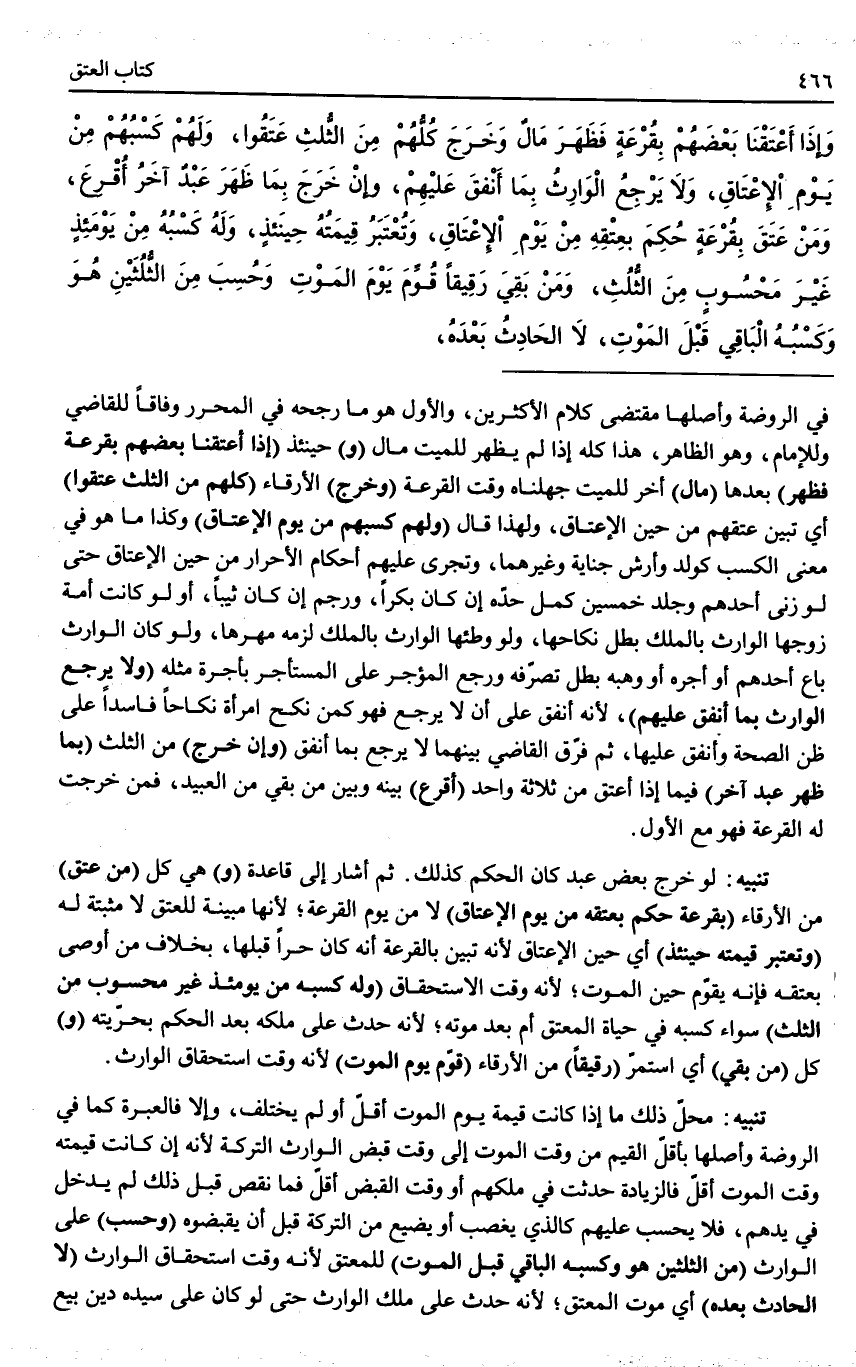 ٤٦٦ كتاب العتق
وَإِذَا أَعْتَقْنَا بَعْضَهُمْ بِقُرْعَةٍ فَظَهَرَ مَالٌ وَخَرَجَ كُلُّهُمْ مِنَ الثُّلثِ عَتَقُوا، وَلَهُمْ كَسْبُهُمْ مِنْ
يَوْمِ الإِعْتَاقِ، وَلَا يَرْجِعُ الْوَارِثُ بِمَا أَنْفقَ عَلَيْهِمْ، وإِنْ خَرَجَ بِمَا ظَهَرَ عَبْدٌ آخَرُ أُقْرِعَ،
وَمَنْ عَتَقَ بِقُرْعَةٍ حُكِمَ بِعِتْقِهِ مِنْ يَوْمِ الإِعْتَاقِ، وَتُعْتَبَرُ قِيمَتُهُ حِينَئذٍ، وَلَهُ كَسْبُهُ مِنْ يَوْمَئِذٍ
غَيْرَ مَحْسُوبٍ مِنَ الثُّلُثِ، وَمَنْ بَقِيَ رَقِيقاً قُوِّمَ يَوْمَ المَوْتِ وَحُسِبَ مِنَ الثُّلثَيْنِ هُوَ
وَكَسْبُهُ الْبَاقِي قَبْلَ المَوْتِ، لَا الحَادِثُ بَعْدَهُ،
في الروضة وأصلها مقتضى كلام الأكثرين، والأول هو ما رجحه في المحرر وفاقاً للقاضي
وللإمام، وهو الظاهر، هذا كله إذا لم يظهر للميت مال (و) حينئذ (إذا أعتقنا بعضهم بقرعة
فظهر) بعدها (مال) أخر للميت جهلناه وقت القرعة (وخرج) الأرقاء (كلهم من الثلث عتقوا)
أي تبين عتقهم من حين الإعتاق، ولهذا قال (ولهم كسبهم من يوم الإعتاق) وكذا ما هو في
معنى الكسب كولد وأرش جناية وغيرهما، وتجرى عليهم أحكام الأحرار من حين الإعتاق حتى
لو زنى أحدهم وجلد خمسين كمل حدّه إن كان بكراً، ورجم إن كان ثيباً، أو لو كانت أمة
زوجها الوارث بالملك بطل نكاحها، ولو وطئها الوارث بالملك لزمه مهرها، ولو كان الوارث
باع أحدهم أو أجره أو وهبه بطل تصرّفه ورجع المؤجر على المستأجر بأجرة مثله (ولا يرجع
الوارث بما أنفق عليهم)، لأنه أنفق على أن لا يرجع فهو كمن نكح امرأة نكاحاً فاسداً على
ظن الصحة وأنفق عليها، ثم فرّق القاضي بينهما لا يرجع بما أنفق (وإن خرج) من الثلث (بما
ظهر عبد آخر) فيما إذا أعتق من ثلاثة واحد (أقرع) بينه وبين من بقي من العبيد، فمن خرجت
له القرعة فهو مع الأول.
تنبيه: لو خرج بعض عبد كان الحكم كذلك. ثم أشار إلى قاعدة (و) هي كل (من عتق)
من الأرقاء (بقرعة حكم بعتقه من يوم الإعتاق) لا من يوم القرعة؛ لأنها مبينة للعتق لا مثبتة له
(وتعتبر قيمته حينئذ) أي حين الإعتاق لأنه تبين بالقرعة أنه كان حراً قبلها، بخلاف من أوصى
بعتقه فإنه يقوّم حين الموت؛ لأنه وقت الاستحقاق (وله كسبه من يومئذ غير محسوب من
الثلث) سواء كسبه في حياة المعتق أم بعد موته؛ لأنه حدث على ملكه بعد الحكم بحرّيته (و)
كل (من بقي) أي استمرّ (رقيقاً) من الأرقاء (قوّم يوم الموت) لأنه وقت استحقاق الوارث.
تنبيه: محلّ ذلك ما إذا كانت قيمة يوم الموت أقلّ أو لم يختلف، وإلا فالعبرة كما في
الروضة وأصلها بأقلّ القيم من وقت الموت إلى وقت قبض الوارث التركة لأنه إن كانت قيمته
وقت الموت أقلّ فالزيادة حدثت في ملكهم أو وقت القبض أقلّ فما نقص قبل ذلك لم يدخل
في يدهم، فلا يحسب عليهم كالذي يغصب أو يضيع من التركة قبل أن يقبضوه (وحسب) على
الوارث (من الثلثين هو وكسبه الباقي قبل الموت) للمعتق لأنه وقت استحقاق الوارث (لا
الحادث بعده) أي موت المعتق؛ لأنه حدث على ملك الوارث حتى لو كان على سيده دين بيع